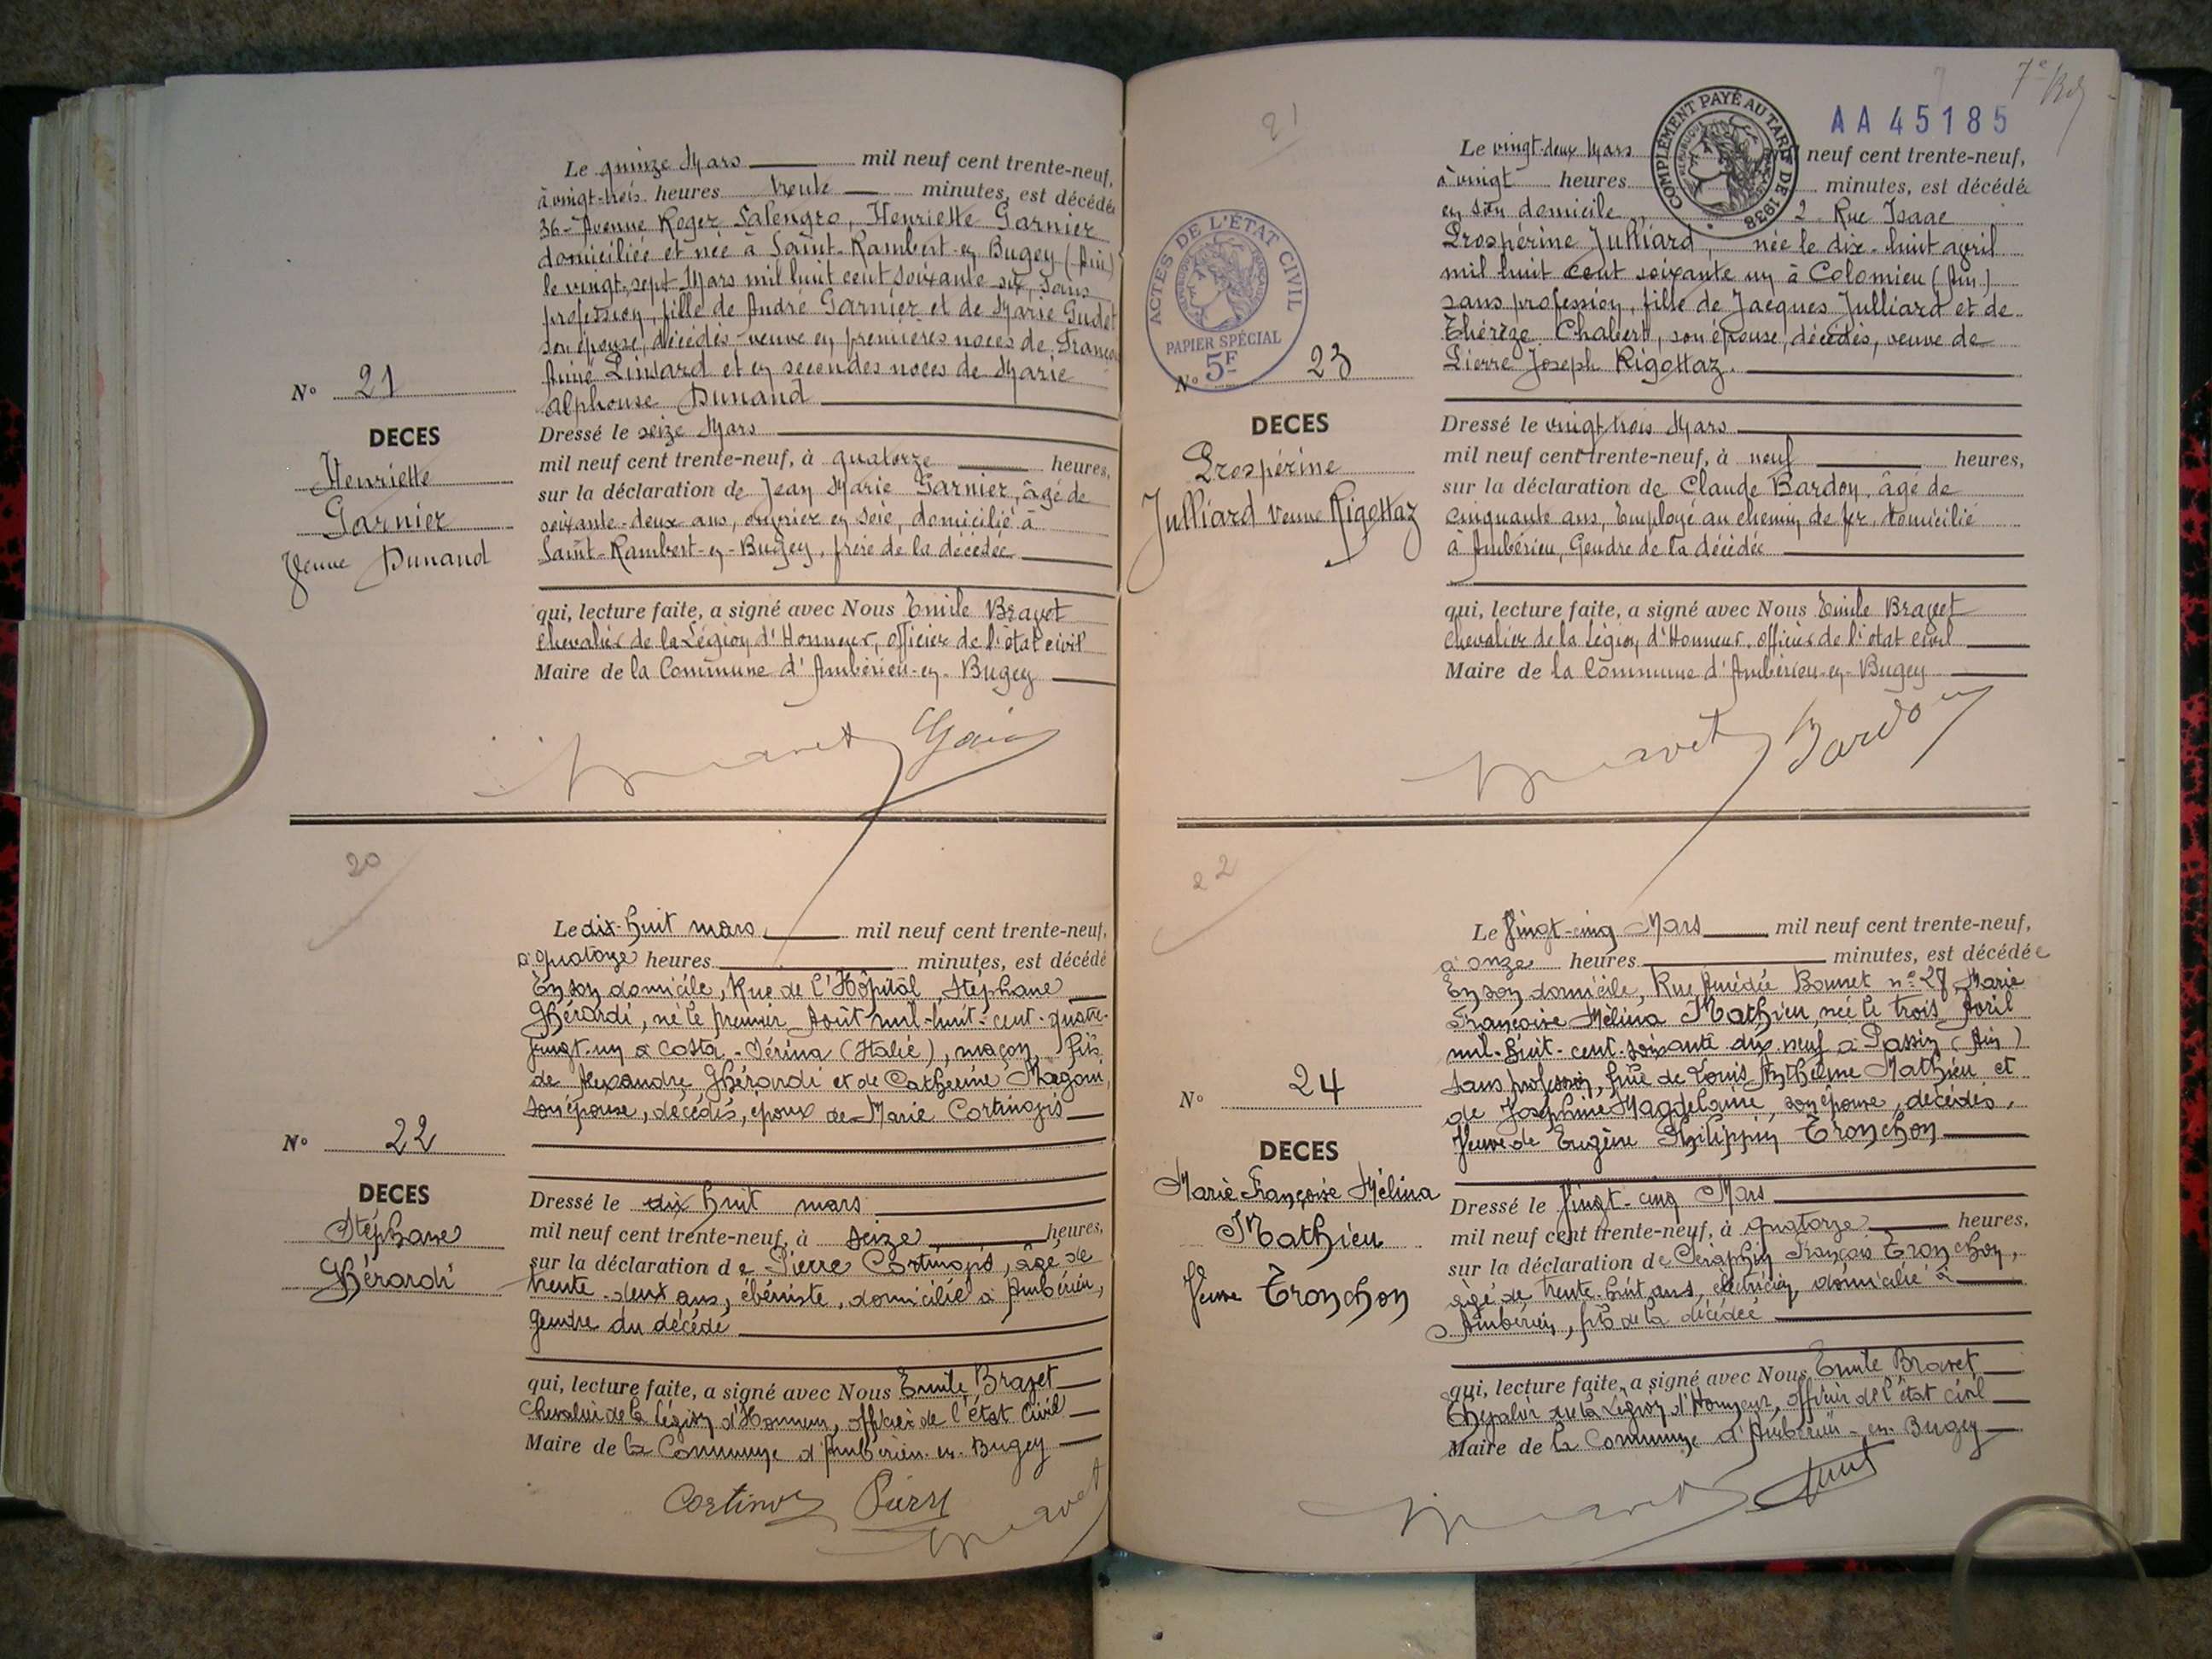 Le quinze Mars mil neuf cent trente-neuf,
à vingt-trois heures trente minutes, est décédée
36 - Avenue Roger Salengro, Henriette Garnier
domiciliée et née à Saint-Rambert-en Bugey (Ain)
le vingt-sept Mars mil huit cent soixante six, sans
profession, fille de André Garnier et de Marie Gudet
son épouse, décédés - veuve en premières noces de
et en secondes noces de Marie
Alphonse Dunand
N° 21
DECES
Henriette
Garnier
Veuve Dunand
Dressé le seize Mars
mil neuf cent trente-neuf, à quatorze heures,
sur la déclaration de Jean Marie Garnier, âgé de
soixante-deux ans, ouvrier en soie, domicilié à
Saint-Rambert-en-Bugey, frère de la décédée
qui, lecture faite, a signé avec Nous Emile Bravet
chevalier de la Légion d'Honneur, officier de l'état civil
Maire de la Commune d'Ambérieu-en-Bugey
20
Le dix-huit mars mil neuf cent trente-neuf,
à quatorze heures minutes, est décédé
En son domicile, Rue de l'Hôpital, Stéphane
Ghérardi, né le premier Août mil-huit-cent-quatre-
vingt-un à Costa-Sérina (Italie), maçon, fils
de Alexandre Ghérardi et de Catherine Magoni,
son épouse, décédés, époux de Marie Cortinovis
N° 22
DECES
Stéphane
Ghérardi
Dressé le dix huit mars
mil neuf cent trente-neuf, à seize heures,
sur la déclaration de Pierre Cortinovis, âgé de
trente-deux ans, ébéniste, domicilié à Ambérieu,
gendre du décédé
qui, lecture faite, a signé avec Nous Emile Bravet
Chevalier de la Légion d'Honneur, officier de l'état civil
Maire de la Commune d'Ambérieu-en-Bugey
Cortinovis Pierre
7e
AA 45185
COMPLÉMENT PAYÉ AU TARIF DE 1938
21
Le vingt-deux Mars neuf cent trente-neuf,
à vingt heures minutes, est décédée
en son domicile 2 Rue Isaac
Prospérine Julliard, née le dix-huit avril
mil huit cent soixante un à Colomieu (Ain)
sans profession, fille de Jacques Julliard et de
Thérèze Chabert, son épouse, décédés, veuve de
Pierre Joseph Rigottaz.
ACTES DE L'ÉTAT CIVIL
PAPIER SPÉCIAL
5F
N° 23
DECES
Prospérine
Julliard veuve Rigottaz
Dressé le vingt trois Mars
mil neuf cent trente-neuf, à neuf heures,
sur la déclaration de Claude Bardon, âgé de
cinquante ans, Employé au chemin de fer, domicilié
à Ambérieu, Gendre de la décédée
qui, lecture faite, a signé avec Nous Emile Bravet
chevalier de la Légion d'Honneur, officier de l'état civil
Maire de la Commune d'Ambérieu-en-Bugey
Bravet Bardon
22
Le Vingt-cinq Mars mil neuf cent trente-neuf,
à onze heures minutes, est décédée
En son domicile, Rue Amédée Bonnet n° 28, Marie
Françoise Mélina Mathieu, née le trois Avril
mil-huit-cent-soixante dix neuf à Passin (Ain)
sans profession, fille de Louis Anthelme Mathieu et
de Joséphine Magdelaine, son épouse, décédés,
Veuve de Eugène Philippin Tronchon
N° 24
DECES
Marie Françoise Mélina
Mathieu
Veuve Tronchon
Dressé le Vingt-cinq Mars
mil neuf cent trente-neuf, à quatorze heures,
sur la déclaration de Séraphin François Tronchon,
âgé de trente-huit ans, électricien, domicilié à
Ambérieu, fils de la décédée
qui, lecture faite, a signé avec Nous Emile Bravet
Chevalier de la Légion d'Honneur, officier de l'état civil
Maire de la Commune d'Ambérieu-en-Bugey